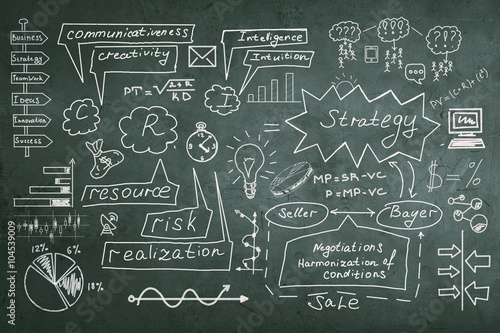 Business
Strategy
Teamwork
Ideas
Innovation
Success
communicativeness
creativity
Intelligence
Intuition
C
R
I
I
resource
risk
realization
Strategy
MP=SR-VC
P=MP-VC
Seller
Bayer
Negotiations
Harmonization of
conditions
Sale
$=%
12%
6%
18%
???
???
104539009